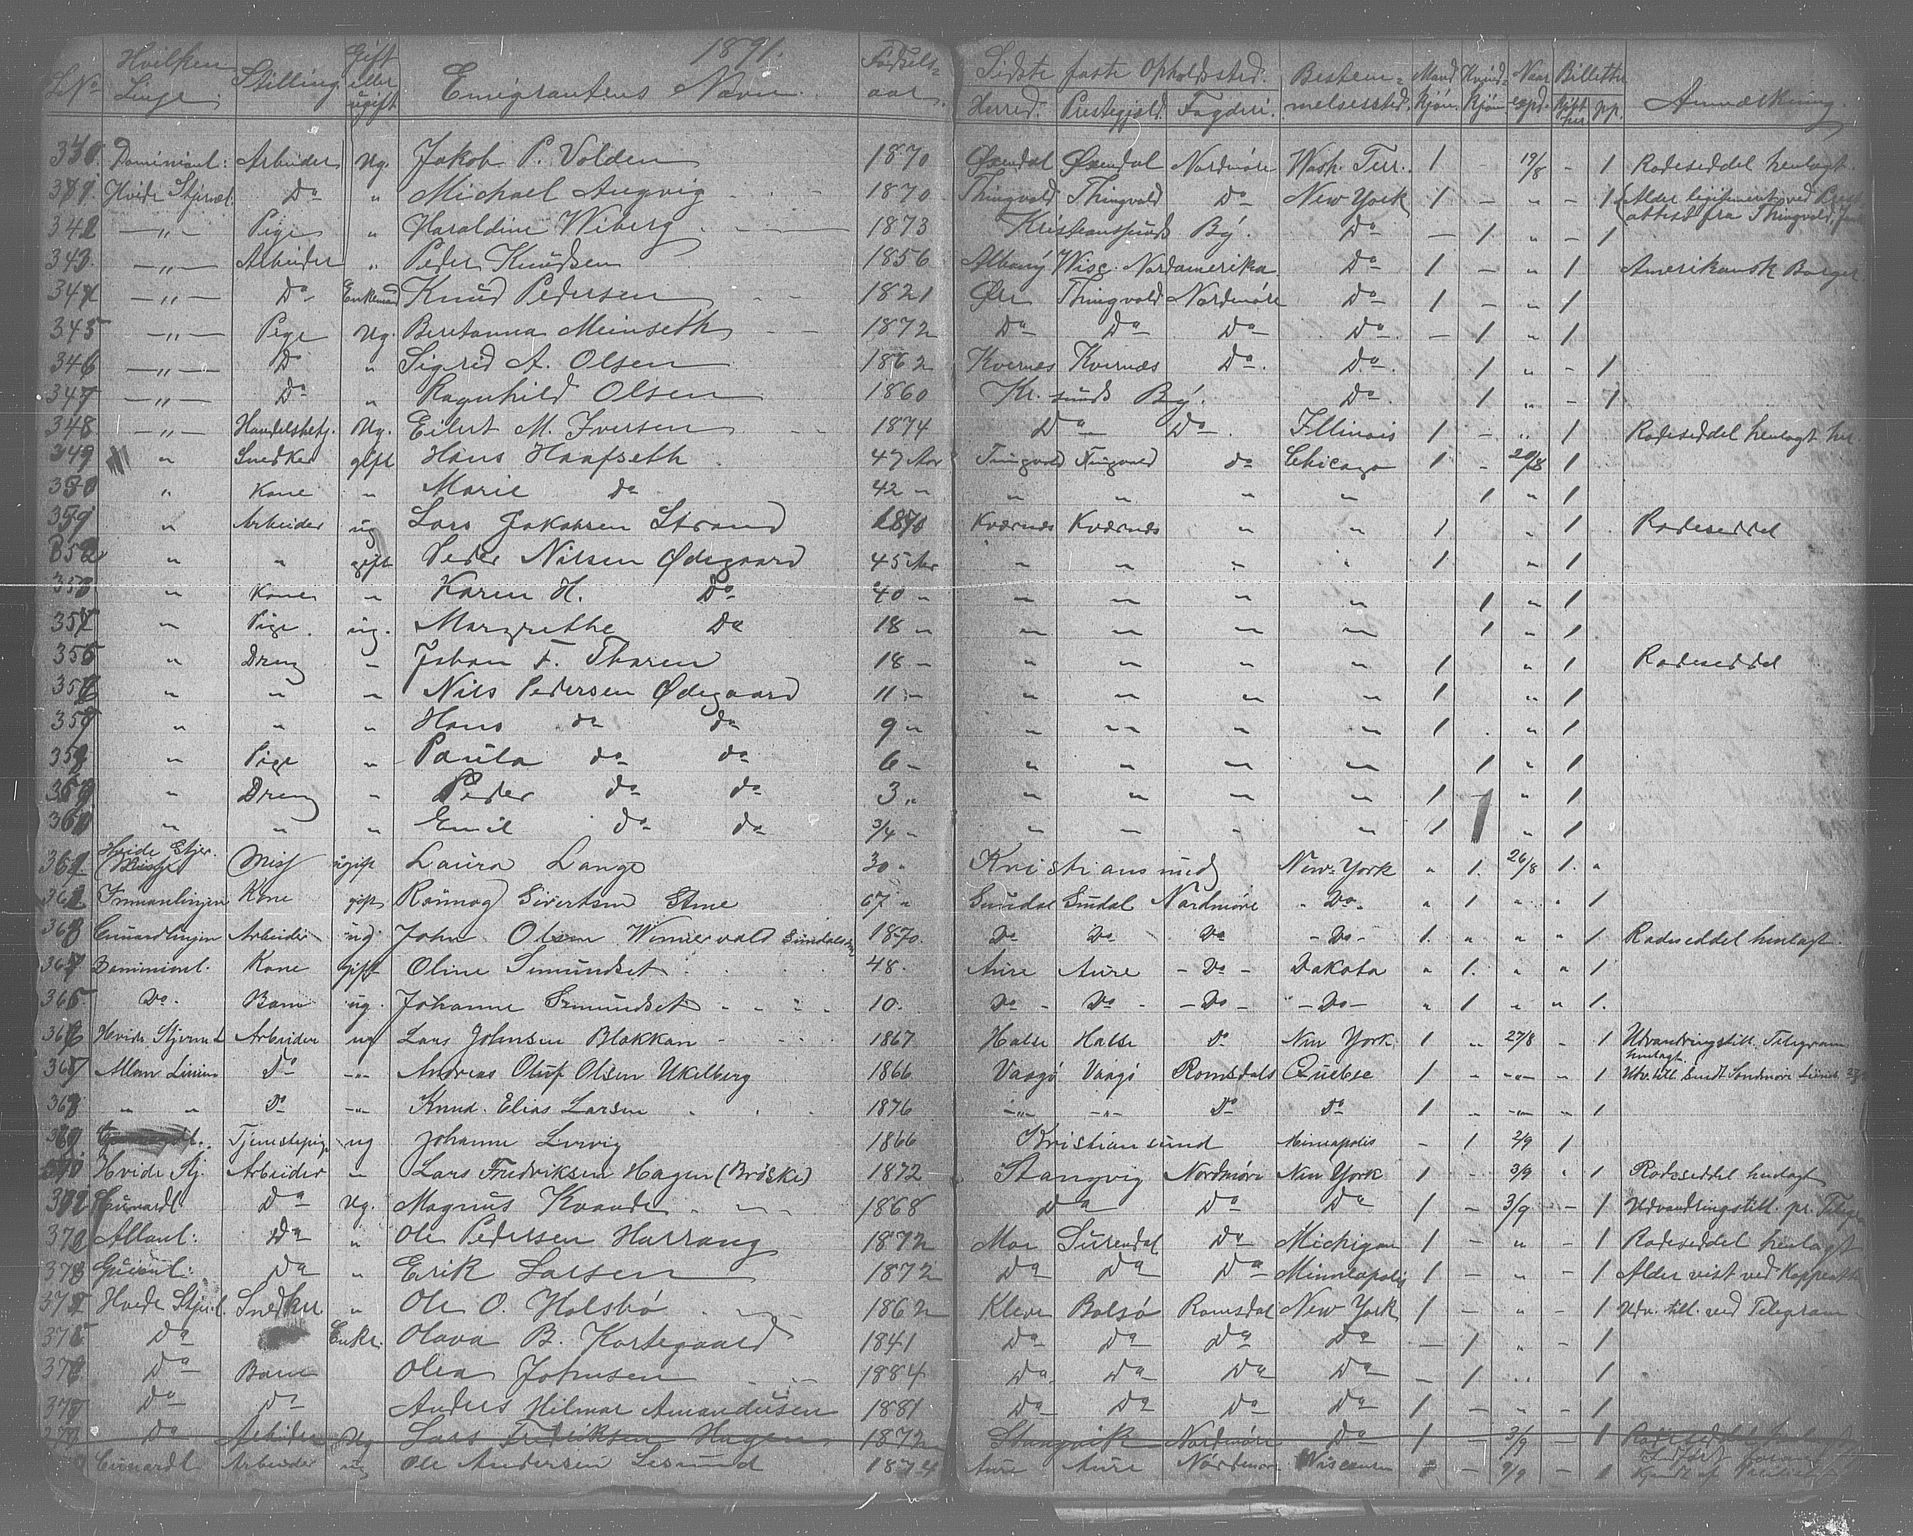 1891.
L.No. Hvilken Linje. Stilling. Gift eller ugift Emigrantens Navn. Fødsels-aar. Sidste faste Opholdssted. Herred. Prestegjæld. Fogderi. Bestem-melsessted. Mand kjøn. Kvind-kjøn. Naar exp. Billetter kjøbt her. pp. Anmærkning.
340. Dominionl: Arbeider Ug. Jakob P. Volden 1870 Øxendal Øxendal Nordmöre Wash. Terr. 1 - 19/8 - 1 Rodeseddel henlagt.
Hvide Stjernel. Do " Michael Angvig 1870 Thingvold Thingvold Do New York 1 - " - 1 Alder legitimeret ved Prest-attest fra Thingvold,
342 -"- Pige " Haraldine Wiberg 1873 Kristianssunds By. Do - 1 " - 1
343. -"- Arbeider " Peder Knudsen 1856 Albany Wisc. Nordamerika Do 1 - " 1 Amerikansk Borger.
344 -"- Do Enkemand Knud Pedersen 1821 Øre Thingvold Nordmöre Do 1 - " 1
345 -"- Pige Ug. Beretanna Meinseth 1872 Do Do Do Do - 1 " 1
346 -"- Do " Sigrid A. Olsen 1862 Kvernæs Kvernæs Do. Do. 1 " - 1
347 -"- Do " Ragnhild Olsen 1860 Kr. sunds By. Do. 1 " - 1
348 -"- Handelsbetj. Ug. Eilert M. Iversen 1874 Do Do. Illinois 1 - " 1 Rodeseddel henlagt her.
349 " Snedker gift Hans Haafseth 47 Aar Tingvold Tingvold do Chicago 1 - 20/8 1
350 " Kone " Marie do 42 " " " " " 1 " 1
351 " Arbeider ug Lars Jakobsen Strand 1870 Kværnæs Kværnæs " " 1 " 1 Rodeseddel
352 " " gift Peder Nilsen Ødegaard 45 Aar " " " " 1 " 1
353 " Kone " Karen H. Do 40 " " " " " 1 " 1
354 " Pige. ug. Margrethe Do 18 " " " " " 1 " 1
355 " Dreng " Johan F. Tharen 18 " " " " " 1 " 1 Rodeseddel
356 " " " Nils Pedersen Ødegaard 11 " " " " " 1 " 1
357 " " " Hans do do 9 " " " " " 1 " 1
358 " Pige " Paula do do 6 " " " " " 1 " 1
359 " Dreng " Peder do do 3 " " " " " 1 - " 1
360 " " " Emil do do 3/4 " " " " " 1 " 1
361 Hvide Stjer. Miss ugift Laura Lange 30 " Kristiansund New-York " 1. 26/8 1. "
362 Inmanlinjen Kone gift Sivertsen 67 " Sundal Sundal Nordmöre " Do " 1 " " 1
363 Cunardlinjen Arbeider ug. John Olsen Sundalen 1870. Do Do Do - Do - 1. " " " 1 Rodeseddel henlagt.
364 Dominionl. Kone gift Oline Smundset 48. Aure Aure - Do - Dakota " 1. " " 1
365. Do. Barn ug. Johanne Smundset 10. Do Do - Do - - Do - " 1 " " 1.
366 Hvide Stjernel Arbeider ug Lars Johnsen Blakkan 1867 Halse Halse Do New York. 1 " 27/8 - 1 Udvandringstill. Telegram henlagt.
367 Allan Linien Do -"- Andreas Oluf Olsen Ukelberg 1866 Vaagø Vaagø Romsdals Quebec 1 - -"- - 1
368 " " Do -"- Knud. Elias Larsen 1876 -"- -"- Do Do 1 - -"- - 1
369 Tjenestepige ug Johanne Lervig 1866 Kristiansund Mineapolis - 1 2/9 1
370 Hvide Stj. Arbeider " Lars Fredriksen Hagen (Brøske) 1872 Stangvig Nordmöre New York 1 - 3/9 " 1 Rodeseddel henlagt
Cunardl Do Ug. Magnus Kvande 1868 Do Do Do 1 - 3/9 - 1 Udvandringstill. pr. Telegr
372 Allanl: Do " Ole Pedersen Harrang 1872 Mo Surendal Do Michigan 1 - " - 1 Rodeseddel henlagt
373 Guionl: Do " Erik Larsen 1872 Do Do Do Minneapolis 1 - " - 1 Alder vist ved Koppeatt
374 Hvide Stjernl. Snedker " Ole O. Holsbö 1862 Kleve Bolsö Romsdal New York 1 - " - 1 Udv. till. ved Telegram
375 Do Enke. Olava B. Kortegaard 1841 Do Do Do Do - 1 " - 1
376 Do Barn Olea Johnsen 1884 Do Do Do Do - 1 " 1
377 Do Do Anders Hilmar Amandussen 1881 Do Do Do Do 1 - " - 1
378 Do Arbeider Ug Lars Fredriksen Hagen 1872 Stangvik Nordmöre Do 1 - 3/9 - 1 Rodeseddel henlagt
Cunardl Arbeider ug Ole Andersen Lesund 1874 Aure Aure Nordmör Wisconsin 1 - 9/9 - 1